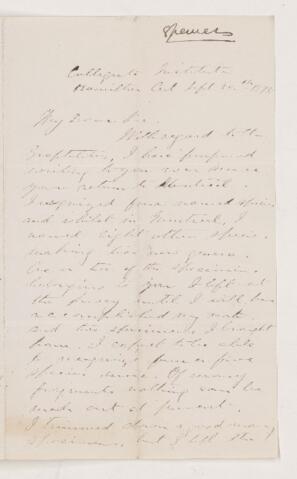 Spencer
Collegiate Institute
Hamilton Ont Sept 30th
My Dear Sir.
With regard to the
Graptolites, I have purposed
writing to you ever since
your return to Montreal.
I recognized four named species
and whilst in Montreal, I
named eight other species
making two new genera.
One or two of the specimens
belonging to you I left at
the Survey until I will have
accomplished my work
and two specimens I brought
home. I expect to be able
to recognize four or five
species more. Of many
fragments nothing can be
made out at present.
I trimmed down a good many
specimens, but I left the